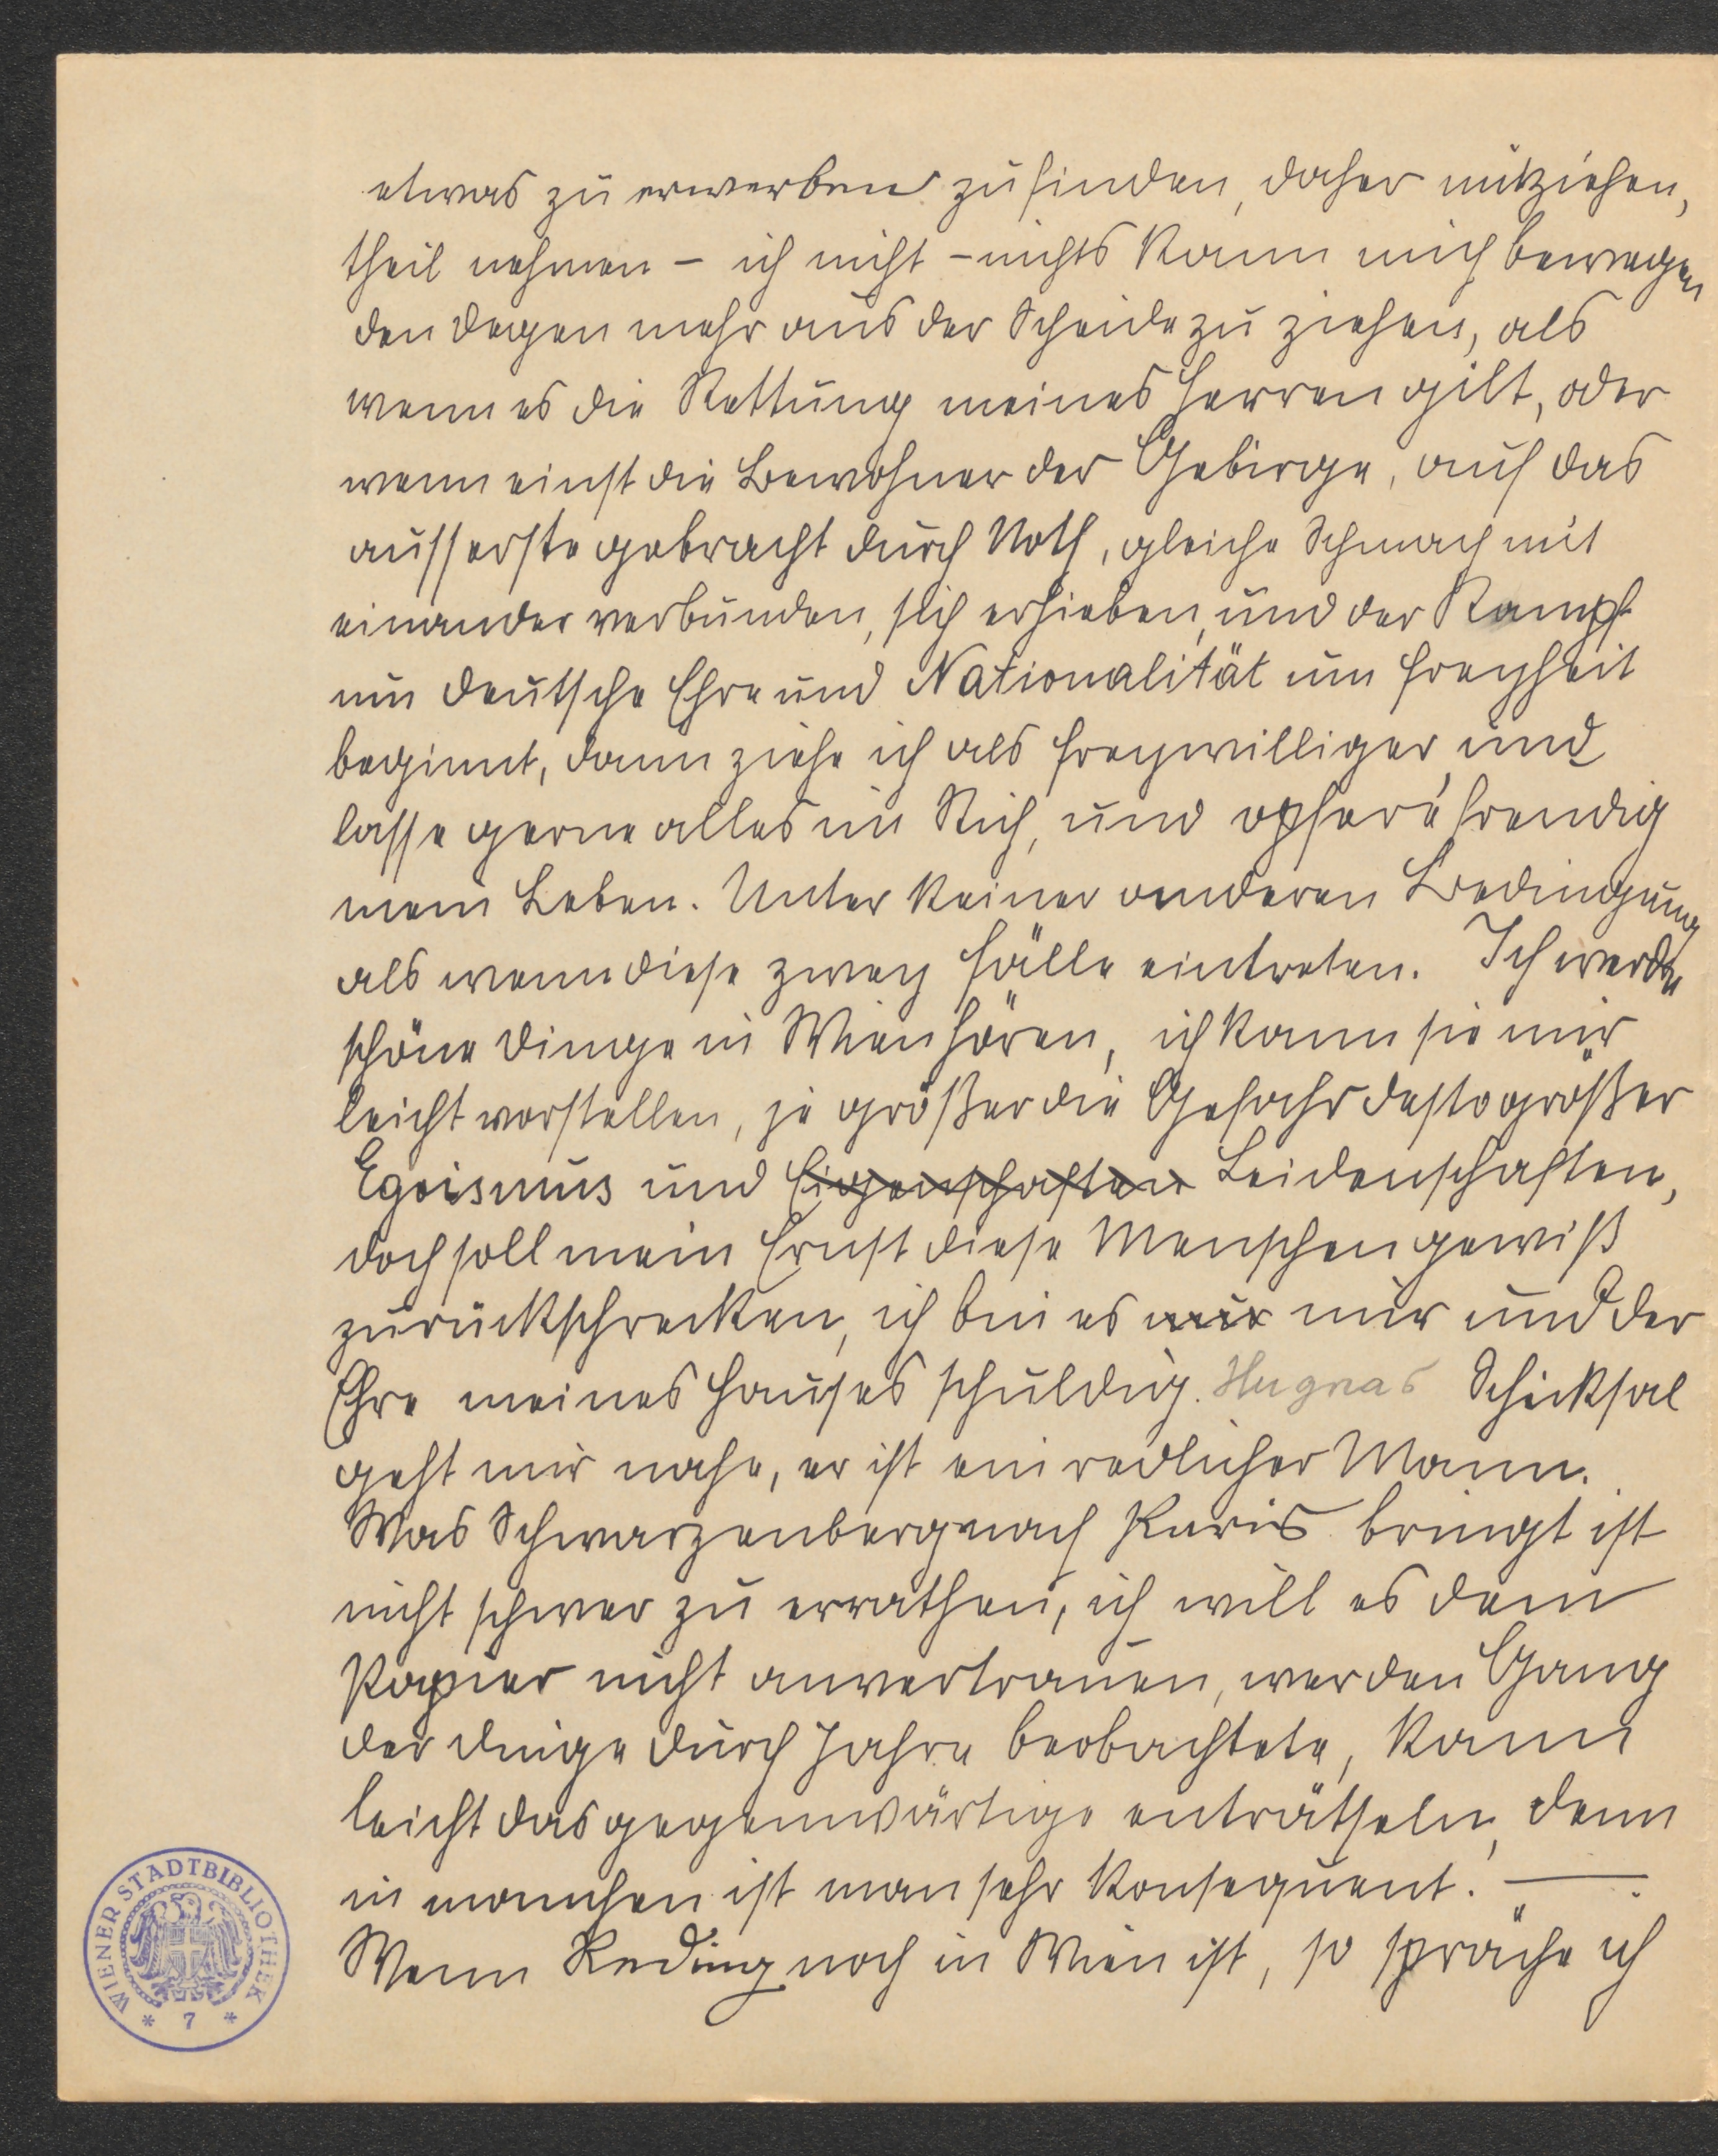 etwas zu erwerben zu finden, daher mitziehen,
theil nehmen – ich nicht – nichts kann mich bewegen
den Degen mehr aus der Scheide zu ziehen, als
wenn es die Rettung meines Herren gilt, oder
wenn einst die Bewohner der Gebirge, auf das
ausserste gebracht durch Noth, gleiche Schmach mit
einander verbunden, sich erhieben, und der Kampf
um deutsche Ehre und Nationalität um Freyheit
beginnt, dann ziehe ich als Freywilliger, und
lasse gerne alles im Stich, und opfere freudig
mein Leben. Unter keiner anderen Bedingung
als wenn diese zwey Fälle eintreten. Ich werde
schöne Dinge in Wien hören, ich kann sie mir
leicht vorstellen, je größer die Gefahr desto größer
Egoismus und Eigenschaften Leidenschaften,
doch soll mein Ernst diese Menschen gewiß
zurückschrecken, ich bin es mir mir und der
Ehre meines Hauses schuldig. Hugnas Schicksal
geht mir nahe, er ist ein redlicher Mann.
Was Schwarzenberg nach Paris bringt ist
nicht schwer zu errathen, ich will es dem
Papier nicht anvertrauen, wer den Gang
der Dinge durch Jahre beobachtete, kann
leicht das gegenwärtige enträtseln, denn
in manchen ist man sehr konsequent. —
Wenn Reding noch in Wien ist, so spräche ich
WIENER STADTBIBLIOTHEK
* 7 *